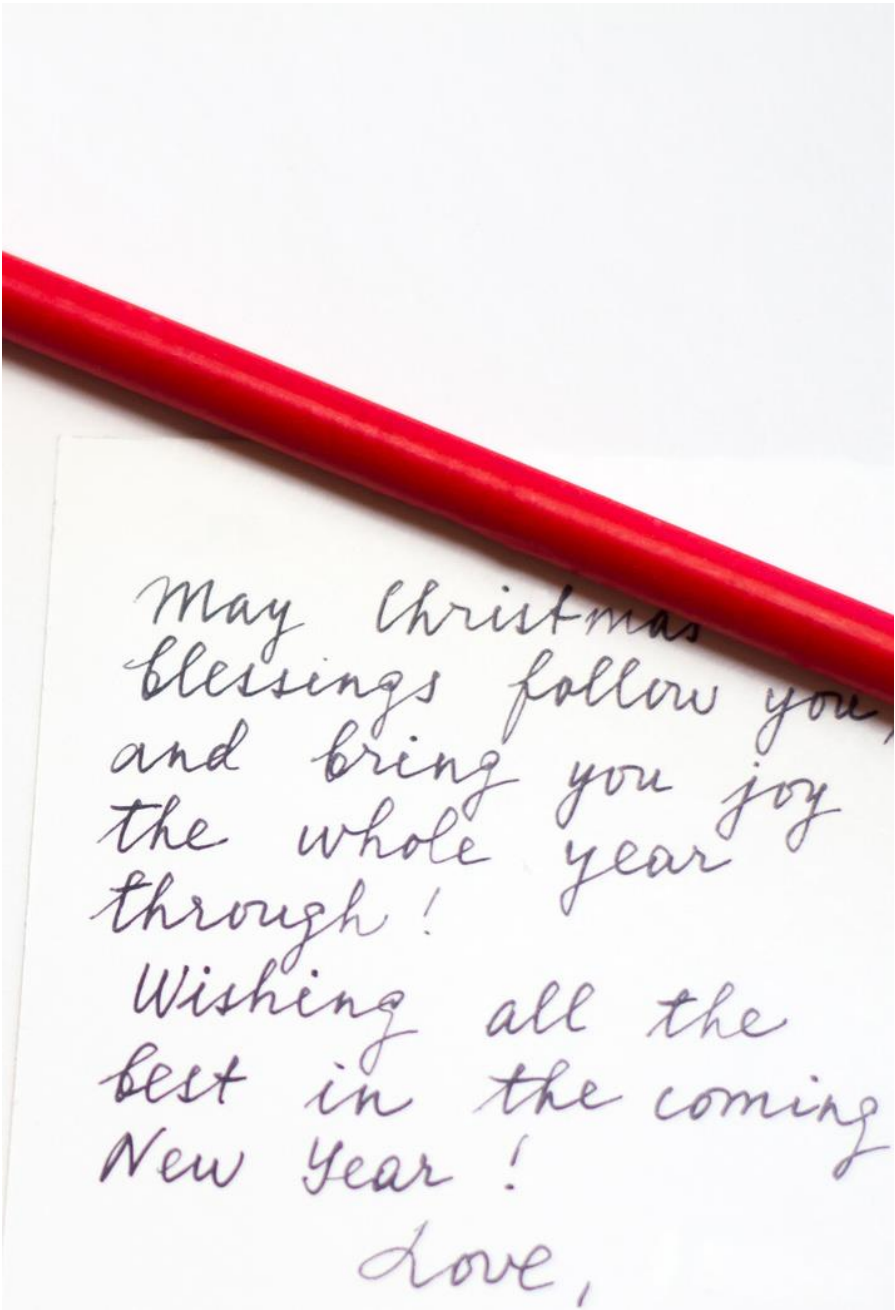 May Christmas
blessings follow you,
and bring you joy
the whole year
through!
Wishing all the
best in the coming
New Year!
Love,